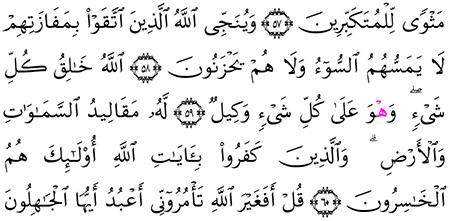 مَثْوًى لِّلْمُتَكَبِّرِينَ ٥٧ وَيُنَجِّى اللَّهُ الَّذِينَ اتَّقَوْا۟ بِمَفَازَتِهِمْ
لَا يَمَسُّهُمُ السُّوٓءُ وَلَا هُمْ يَحْزَنُونَ ٥٨ اللَّهُ خَٰلِقُ كُلِّ
شَىْءٍۖ وَهْوَ عَلَىٰ كُلِّ شَىْءٍ وَكِيلٌ ٥٩ لَّهُۥ مَقَالِيدُ السَّمَٰوَٰتِ
وَالْأَرْضِۗ وَالَّذِينَ كَفَرُوا۟ بِـَٔايَٰتِ اللَّهِ أُو۟لَٰٓئِكَ هُمُ
الْخَٰسِرُونَ ٦٠ قُلْ أَفَغَيْرَ اللَّهِ تَأْمُرُونِّى أَعْبُدُ أَيُّهَا الْجَٰهِلُونَ